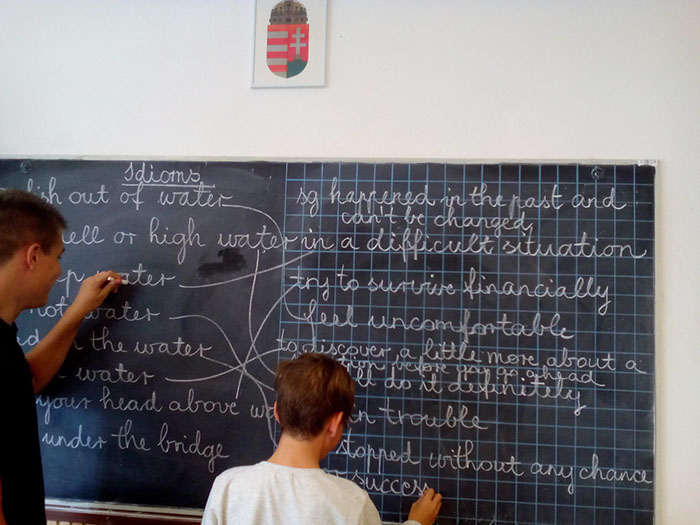 Idioms
fish out of water
hell or high water
water
hot water
in the water
water
your head above
under the bridge
sg happened in the past and
can't be changed,
in a difficult situation
try to survive financially
feel uncomfortable
to discover a little more about a
before you go ahead
do it definitely
in trouble
stopped without any chance
success